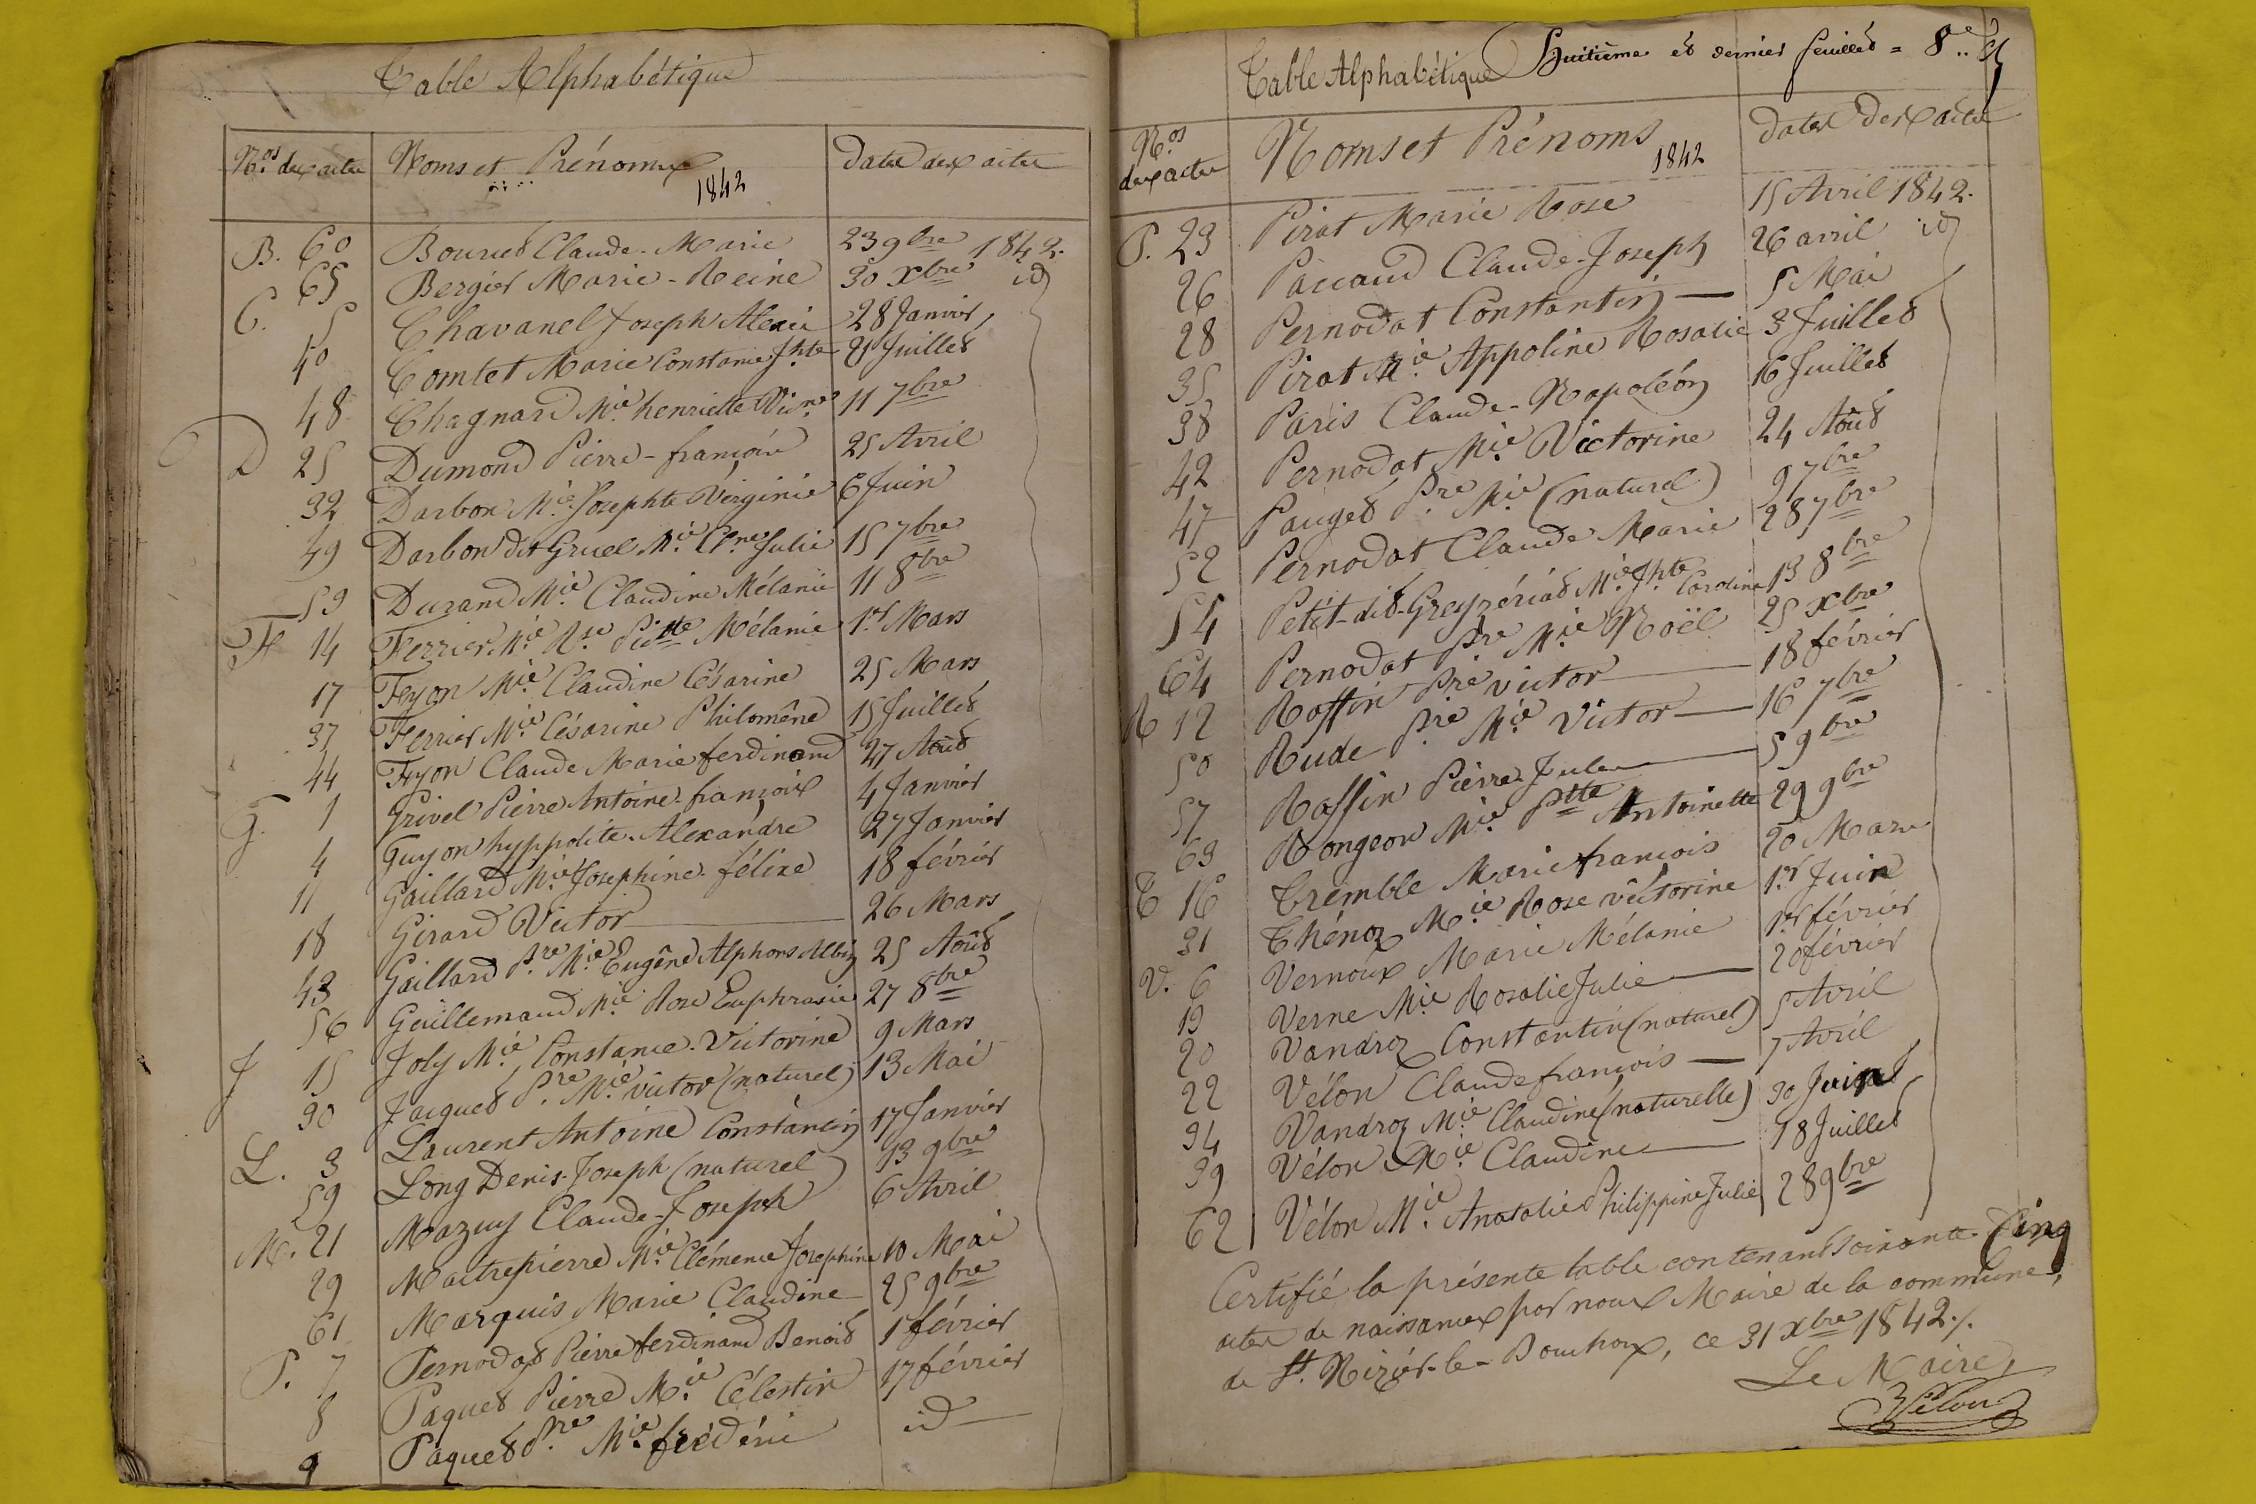 Table Alphabétique
Nos des actes Noms et Prénoms 1842 Dates des actes
B. 60 Bouruet Claude-Marie 23 9bre 1842.
65 Bergier Marie-Reine 30 Xbre id
C. 5 Chavanel Joseph Alexis 28 Janvier
40 Comtet Marie Constance Jhte 21 Juillet
48 Chagnard Mie henriette 11 7bre
D 25 Dumond Pierre-françois 25 Avril
32 Darbon Mie Josephte Virginie 6 Juin
49 Darbon dit Gruel Mie Clne Julie 15 7bre
53 Durand Mie Claudine Mélanie 11 8bre
F 14 Ferrier Mie Rse Mélanie 1er Mars
17 Fyon Mie Claudine Césarine 25 Mars
37 Ferrier Mie Césarine Philomène 15 Juillet
44 Fyon Claude Marie ferdinand 27 Août
G. 1 Grivel Pierre Antoine françois 4 Janvier
4 Guyon hyppolite-Alexandre 27 Janvier
11 Gaillard Mie Josephine félixe 18 février
18 Girard Victor 26 Mars
43 Gaillard Pre Mie Eugène Alphons Albin 25 Août
56 Guillemaud Mie Rose Euphrasie 27 8bre
J 15 Joly Mie Constance-Victorine 9 Mars
30 Jacques Pre Mie victor (naturel) 13 Mai
L. 3 Laurent Antoine Constantin 17 Janvier
59 Long Denis-Joseph (naturel) 13 9bre
M. 21 Mazuy Claude-Joseph 6 Avril
29 Maitrepierre Mie Clémence Josephine 10 Mai
61 Marquis Marie Claudine 25 9bre
P. 7 Pernodat Pierre ferdinand Benoit 1r février
8 Paquet Pierre Mie Célestin 17 février
9 Paquet Pre Mie frédéric id
Huitième et dernier feuillet = 8e
Table Alphabétique
Nos des actes Noms et Prénoms 1842 Dates des actes
P. 23 Pirat Marie Rose 15 Avril 1842.
26 Paccaud Claude-Joseph 26 avril id
28 Pernodat Constantin 5 Mai
35 Pirat Mie Appoline Rosalie 3 Juillet
38 Paris Claude-Napoléon 16 Juillet
42 Pernodat Mie Victorine 24 Août
47 Pauget Pre Mie (naturel) 9 7bre
52 Pernodat Claude Marie 28 7bre
54 Petit-dit-Greyzériat Mie Jhte Caroline 13 8bre
64 Pernodat Pre Mie Noël 25 Xbre
R 12 Roffin Pre victor 18 février
50 Rude Pre Mie Victor 16 7bre
57 Roffin Pierre Jules 5 9bre
63 Rongeon Mie Ptte Antoinette 29 9bre
T 16 Tremble Marie françois 20 Mars
31 Thénoz Mie Rose victorine 1er Juin
V. 6 Vernoux Marie Mélanie 1er février
13 Verne Mie Rosalie Julie 20 février
20 Vandroz Constantin (naturel) 5 Avril
22 Vélon Claude françois 7 Avril
34 Vandroz Mie Claudine (naturelle) 30 Juin
39 Vélon Mie Claudine 18 Juillet
62 Vélon Mie Anatalie Philippine Julie 28 9bre
Certifié la présente table contenant soixante-Cinq
actes de naissances par nous Maire de la commune
de St. Nizier-le-Bouchoux, ce 31 Xbre 1842./.
Le Maire,
Vélon